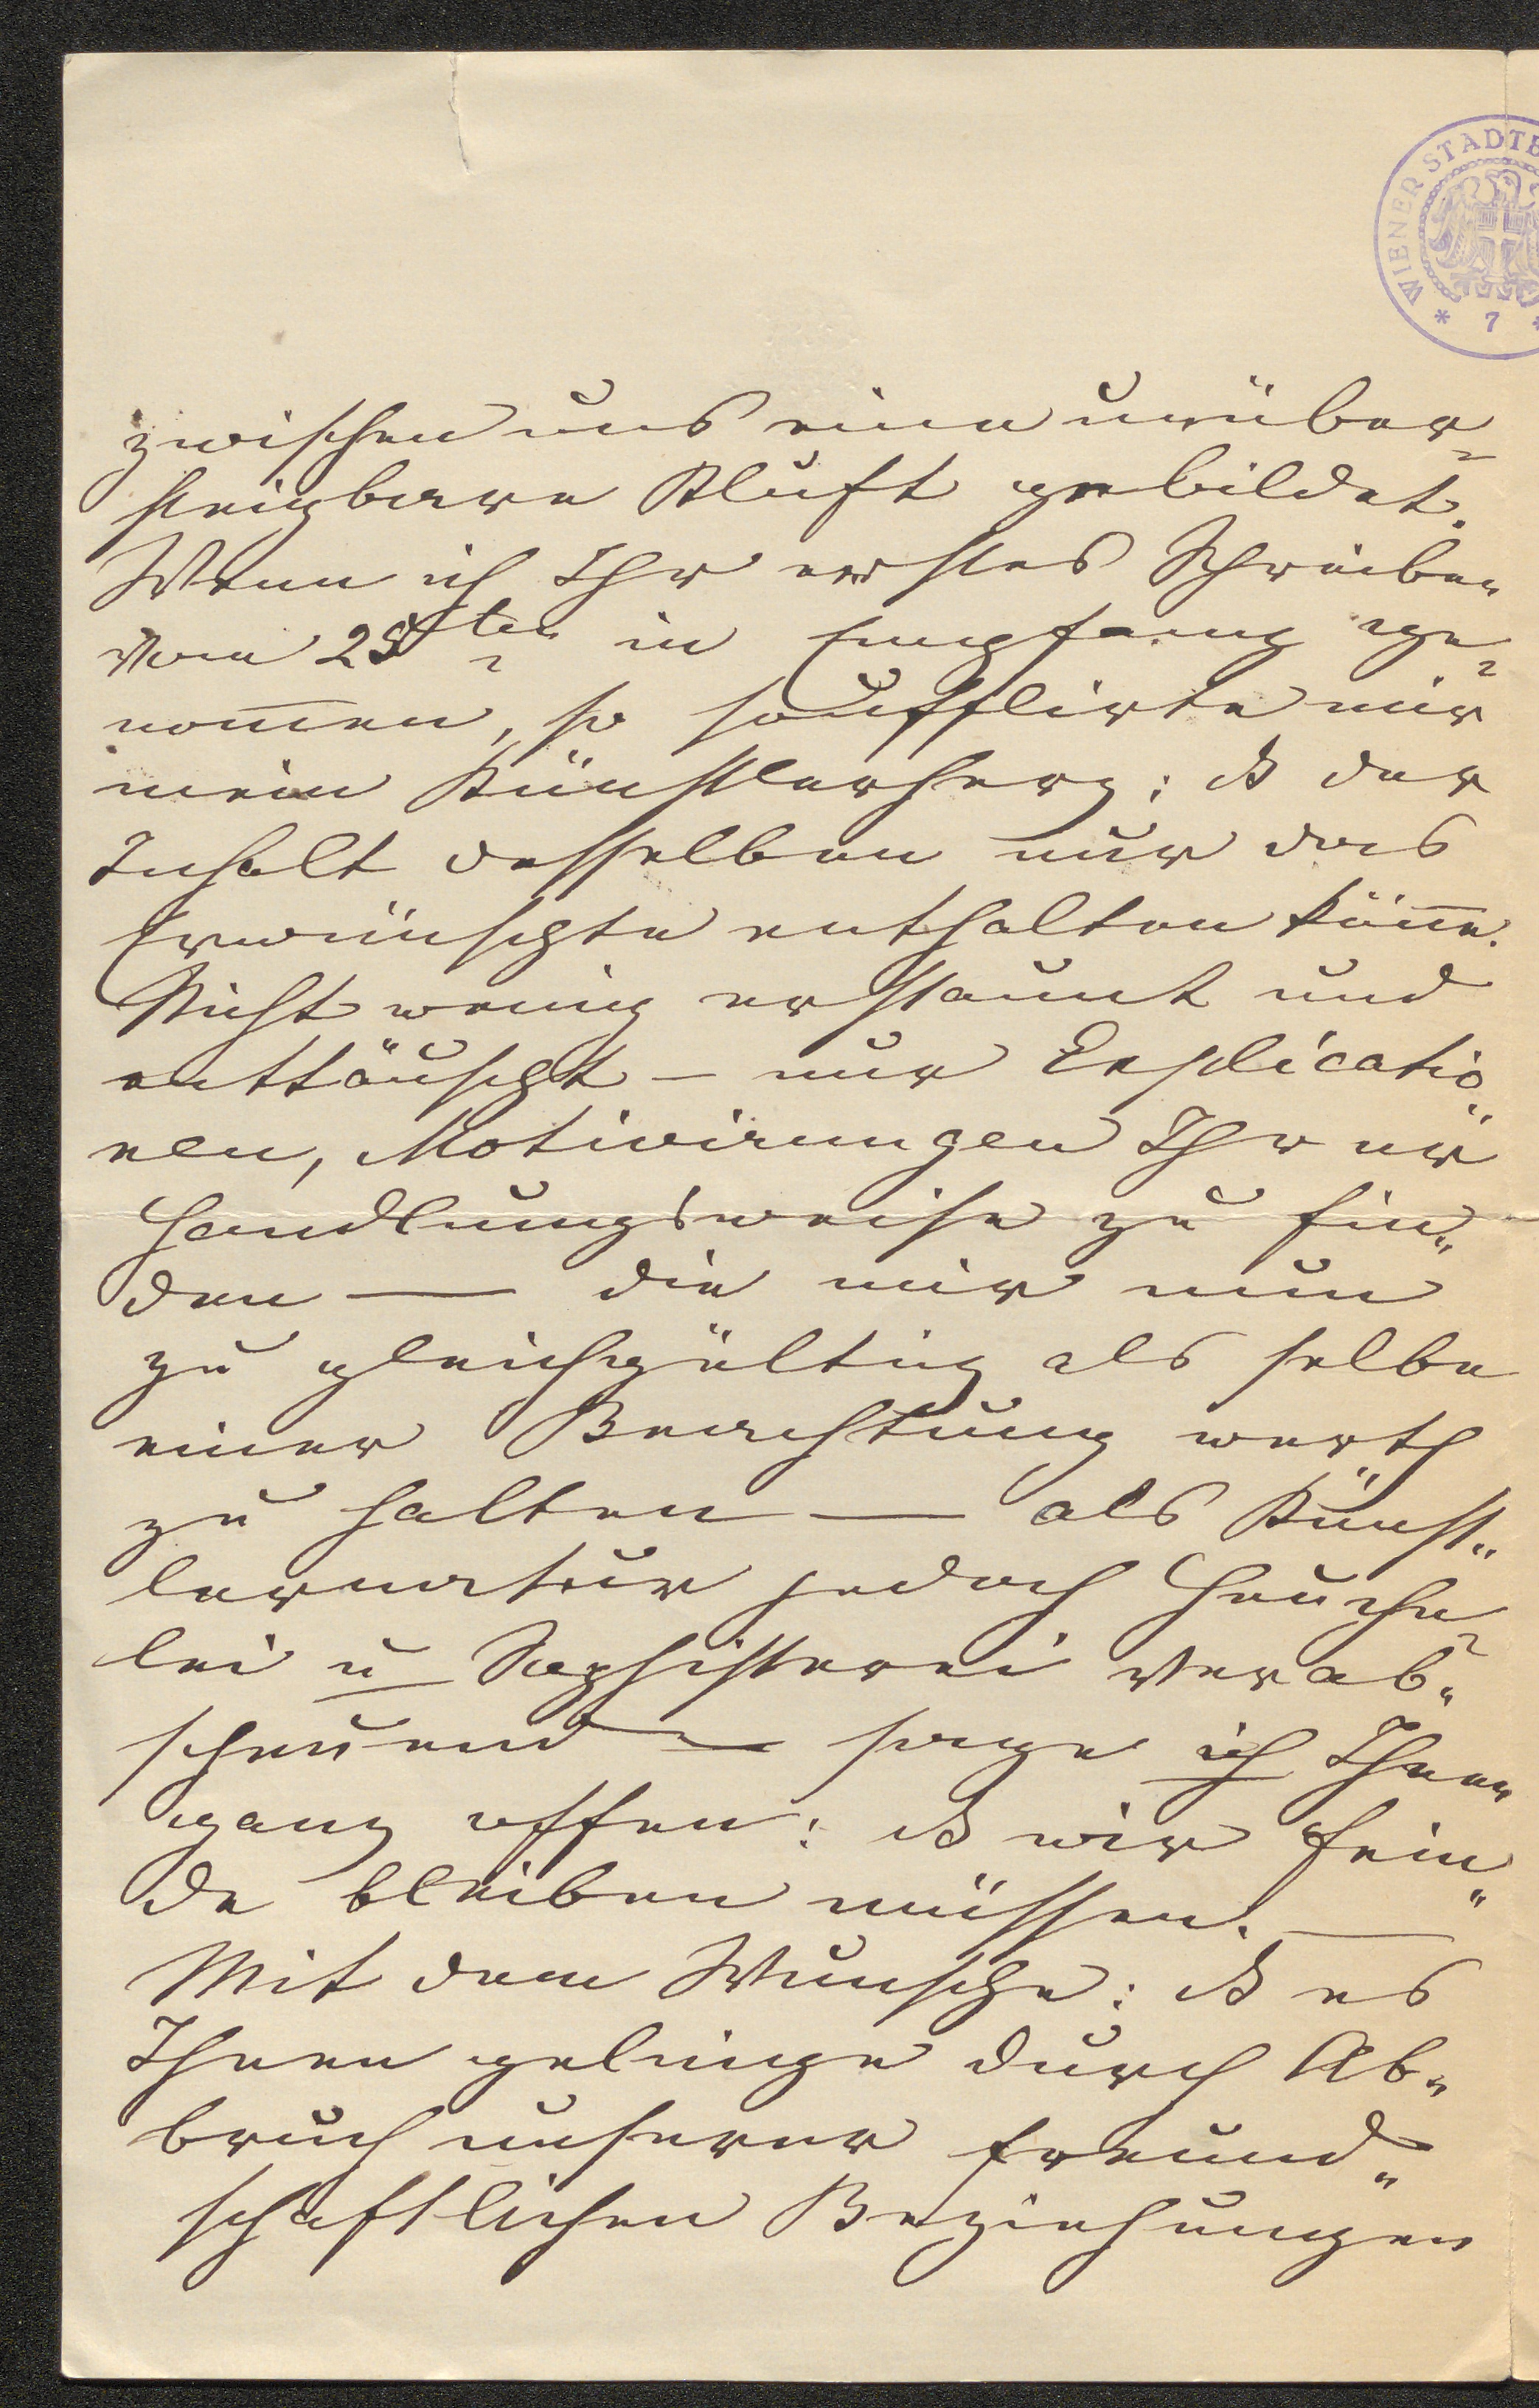 WIENER STADTB
* 7 *
zwischen uns eine unüber-
steigbare Kluft gebildet.
Wenn ich Ihr erstes Schreiben
vom 25ten in Empfang ge-
nom̅en, so soufflirte mir
mein Künstlerherz: dß der
Inhalt desselben nur das
Erwünschte enthalten kön̅e.
Nicht wenig erstaunt und
enttäuscht – nur Explicatio„
nen, Motivirungen Ihrer
Handlungsweise zu fin„
den — die mir nun
zu gleichgültig als selbe
einer Beachtung werth
zu halten — als Künst„
lernatur jedoch Heuche-
lei u Sophisterei verab„
scheuend — sage ich Ihnen
ganz offen: dß wir Fein„
de bleiben müssen. —
Mit dem Wunsche: dß es
Ihnen gelinge durch Ab„
bruch unserer freund„
schaftlichen Beziehungen